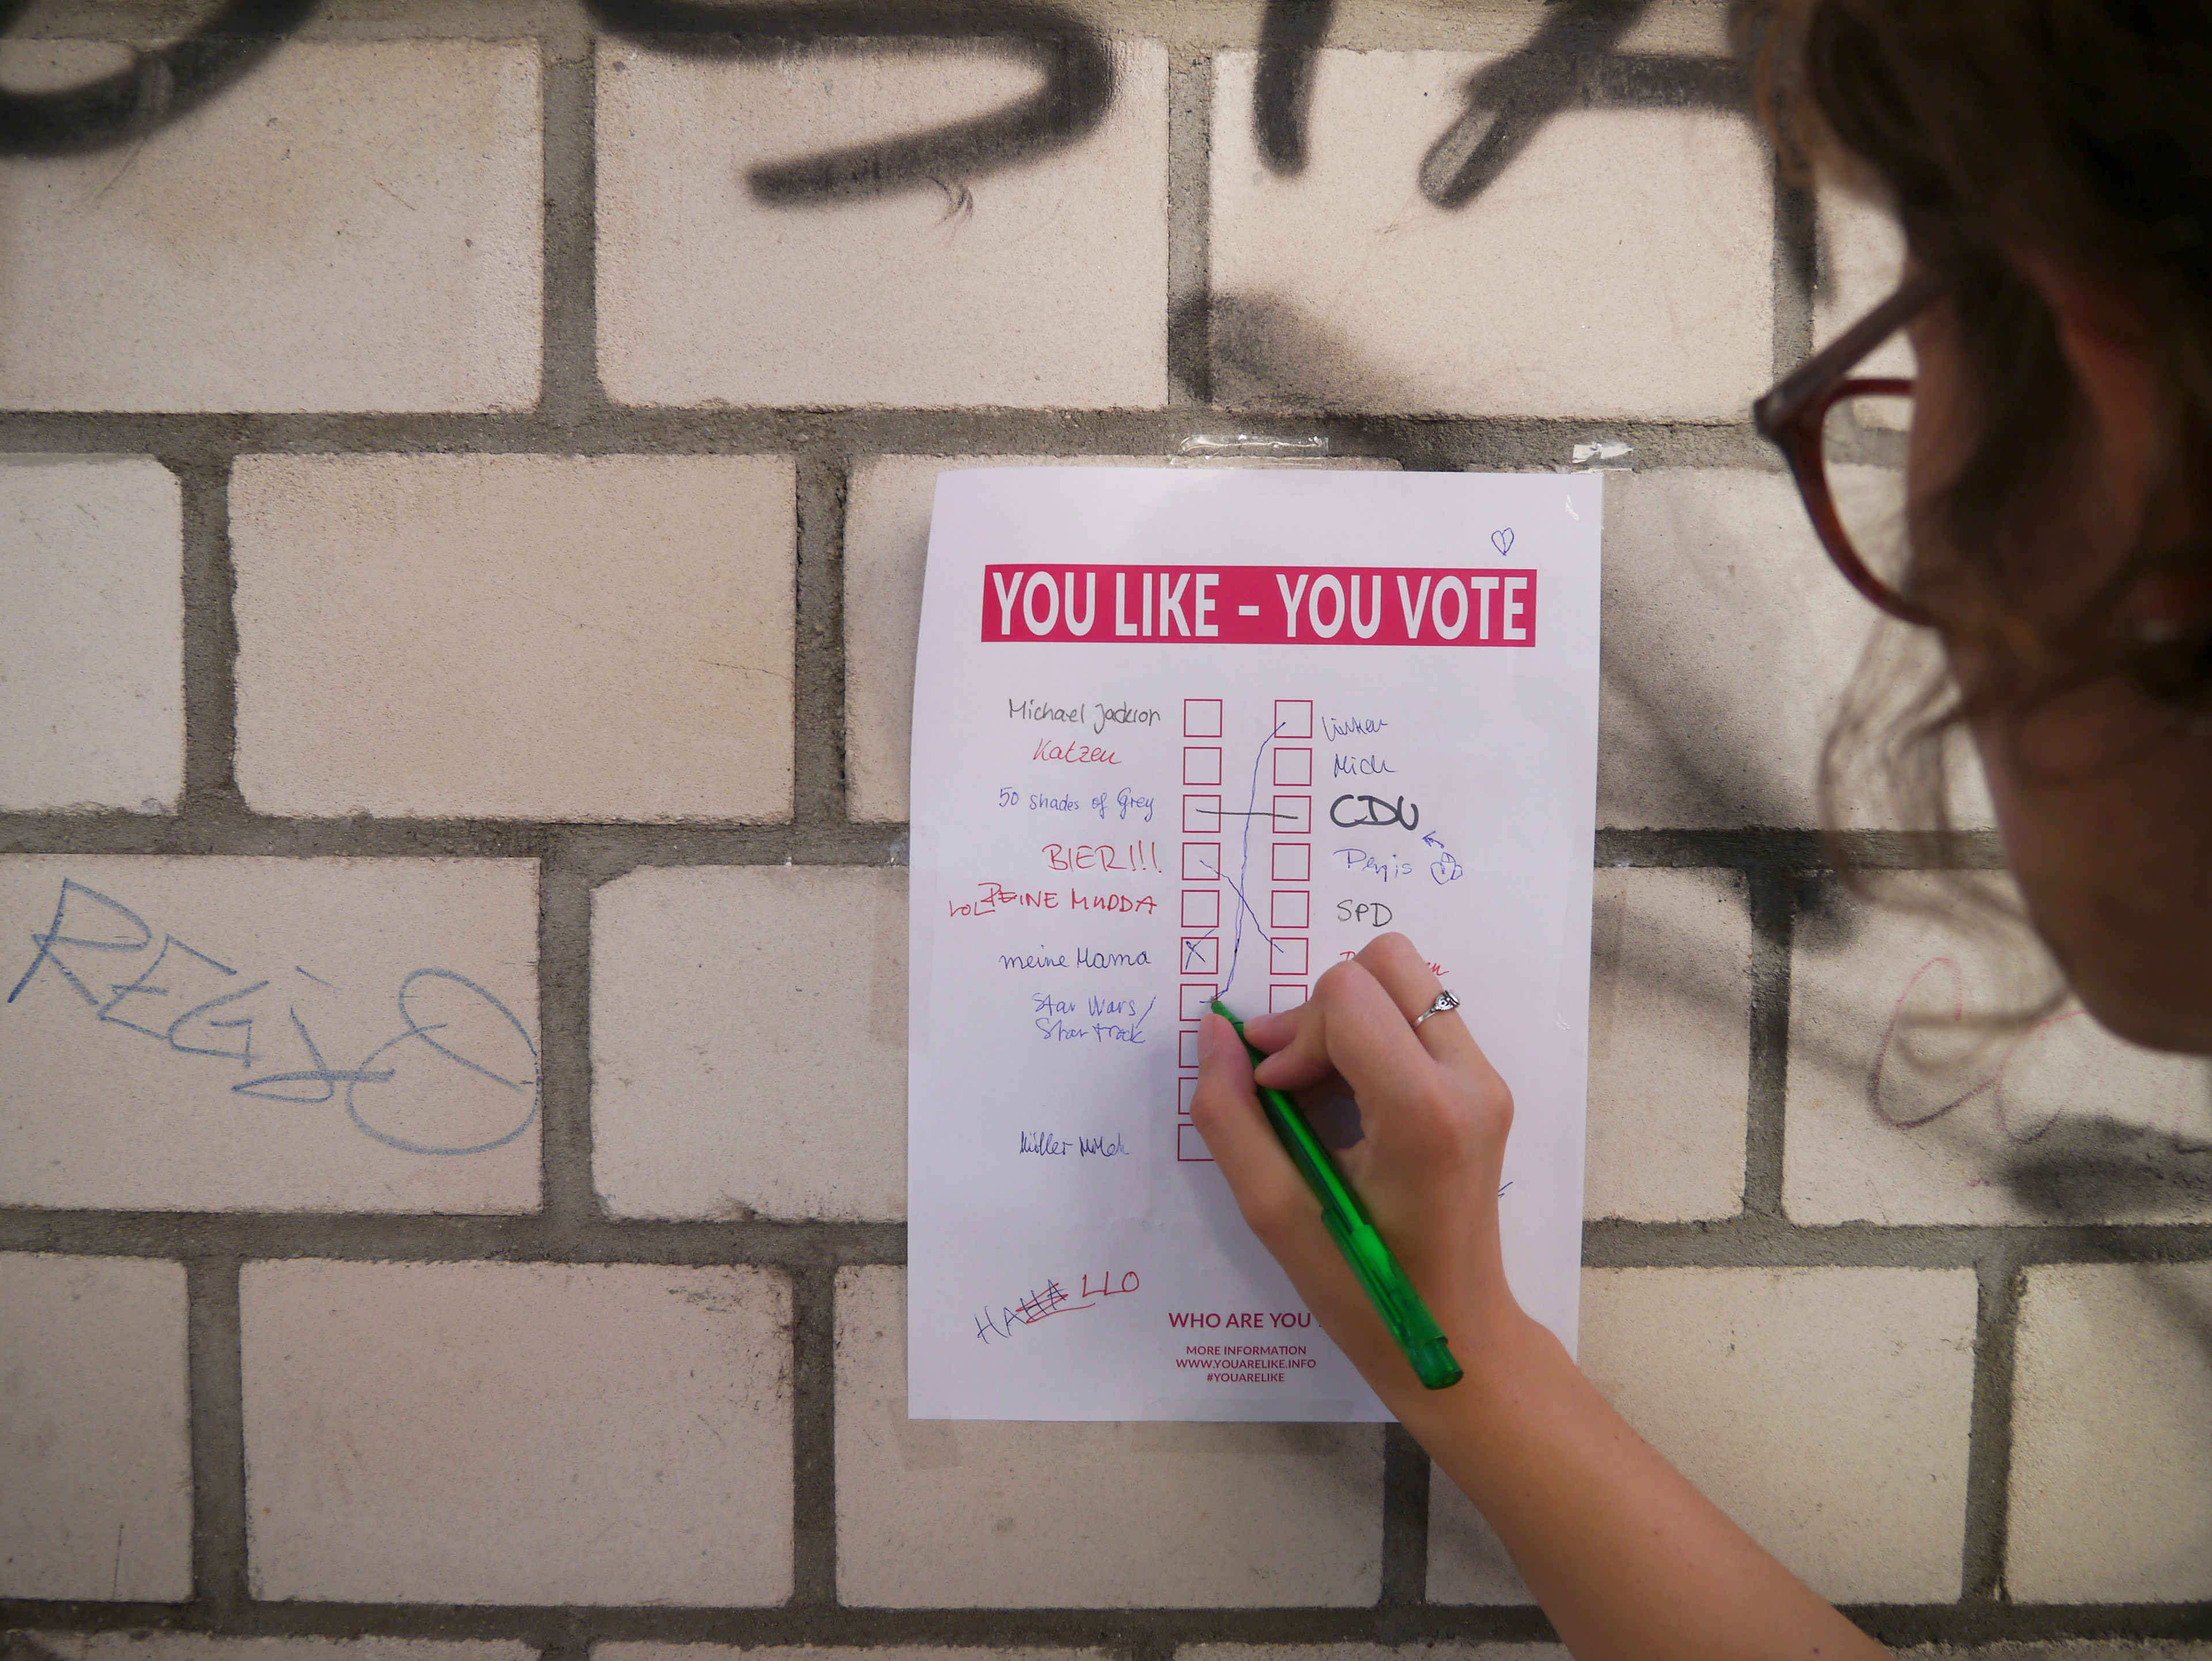 YOU LIKE - YOU VOTE
Michael Jackson
Linken
Katzen
Mich
50 Shades of Grey
CDU
BIER!!!
Penis
LOL DEINE MUDDA
SPD
meine Mama
Star Wars/
Star trek
Müller Milch
HAHA LLO
WHO ARE YOU
MORE INFORMATION
WWW.YOUARELIKE.INFO
#YOUARELIKE